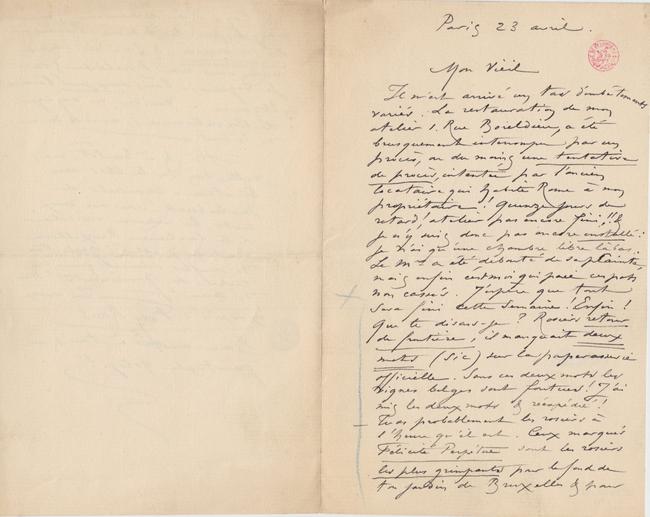 Paris 23 avril.
Mon Vieil
Il m'est arrivé un tas d'embêtements
variés. La restauration de mon
atelier 1. Rue Boieldieu, a été
brusquement interrompue par un
procès, ou du moins une tentative
de procès, intentée par l'ancien
locataire qui habite Rome à mon
propriétaire! Quinze jours de
retard! atelier pas encore fini!! &
je n'y suis donc pas encore installé:
je n'ai qu'une chambre libre là bas.
Le Mr a été débouté de sa plainte,
mais enfin c'est moi qui paie ces pots
non cassés. J'espère que tout
sera fini cette semaine! Enfin!
Que te disais-je? Rosiers retour
de frontière, il manquait deux
mots (sic) sur la paperasserie
officielle. Sans ces deux mots les
vignes belges sont foutues! J'ai
mis les deux mots & réexpédié!
Tu as probablement les rosiers à
l'heure qu'il est. Ceux marqués
Félicité Perpétue sont les rosiers
les plus grimpants pour le fond de
ton jardin de Bruxelles & pour